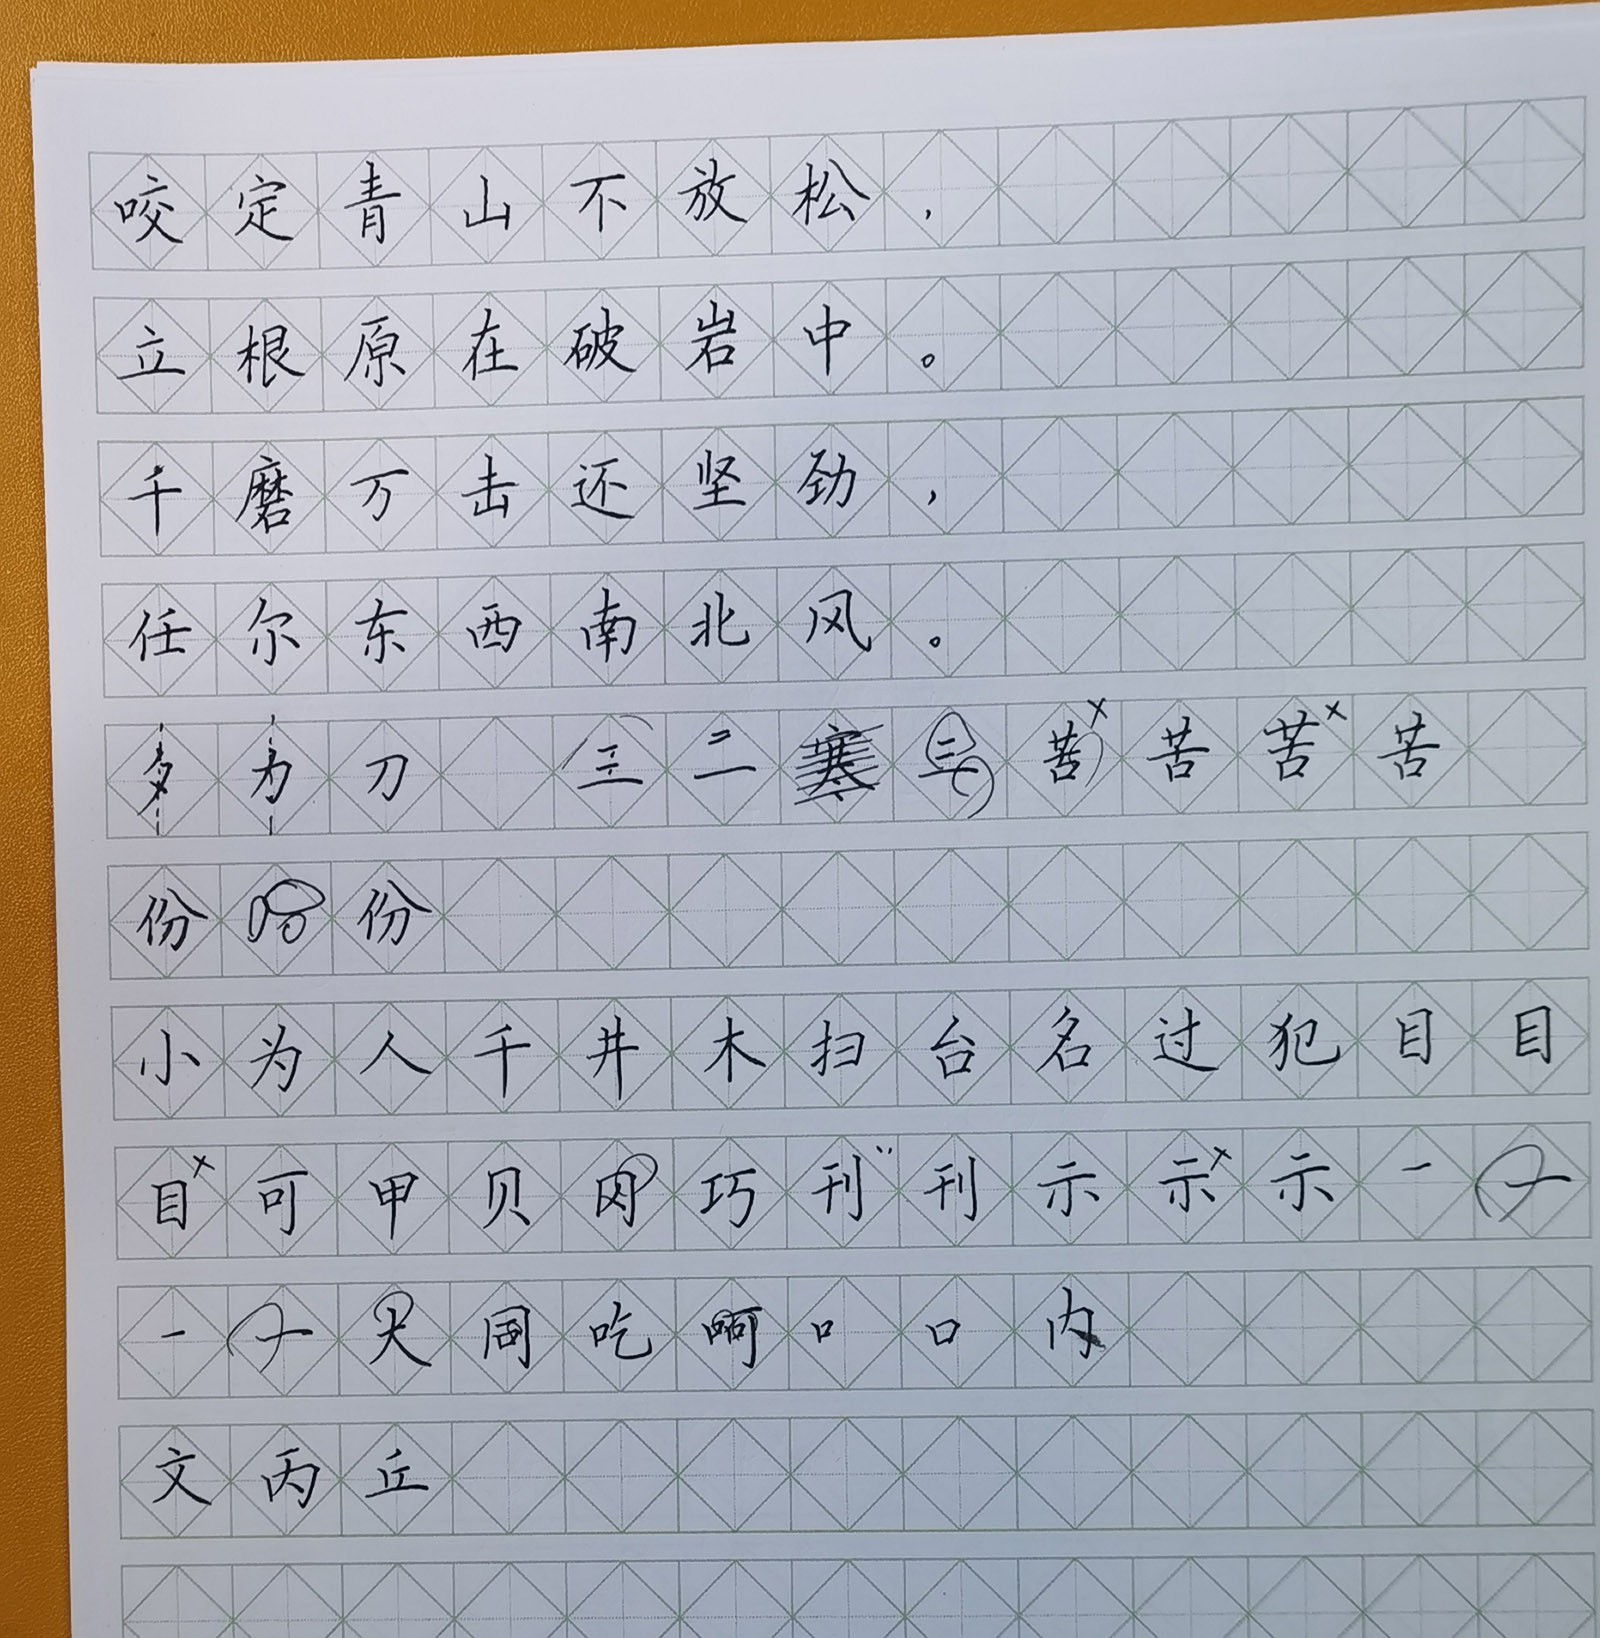 咬定青山不放松，
立根原在破岩中。
千磨万击还坚劲，
任尔东西南北风。
多为刀 三二寒苦苦苦苦
份份
小为人千井木扫台名过犯目目
目可甲贝冈巧刊刊示示示一
一大同吃呵口口内
文丙丘